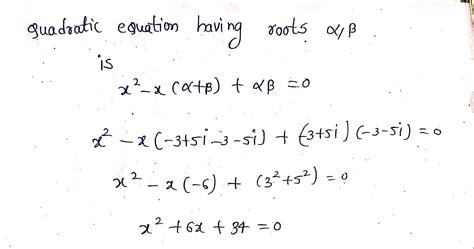 quadratic equation having roots α,β
is
x² - x (α+β) + αβ = 0
x² - x (-3+5i -3 -5i) + (-3+5i) (-3-5i) = 0
x² - x (-6) + (3²+5²) = 0
x² + 6x + 34 = 0